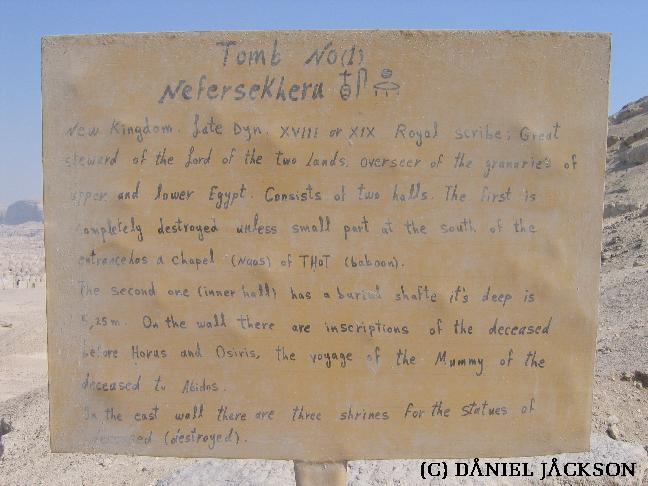 Tomb No(1)
Nefersekheru
New Kingdom. Late Dyn. XVIII or XIX Royal scribe; Great
steward of the lord of the two lands, overseer of the granaries of
upper and lower Egypt. Consists of two halls. The first is
completely destroyed unless small part at the south of the
entrance as a chapel (Naos) of THOT (baboon).
The second one (inner hall) has a burial shafte it's deep is
5,25m. On the wall there are inscriptions of the deceased
before Horus and Osiris, the voyage of the Mummy of the
deceased to Abidos.
In the east wall there are three shrines for the statues of
deceased (destroyed).
(C) DÅNIEL JÅCKSON